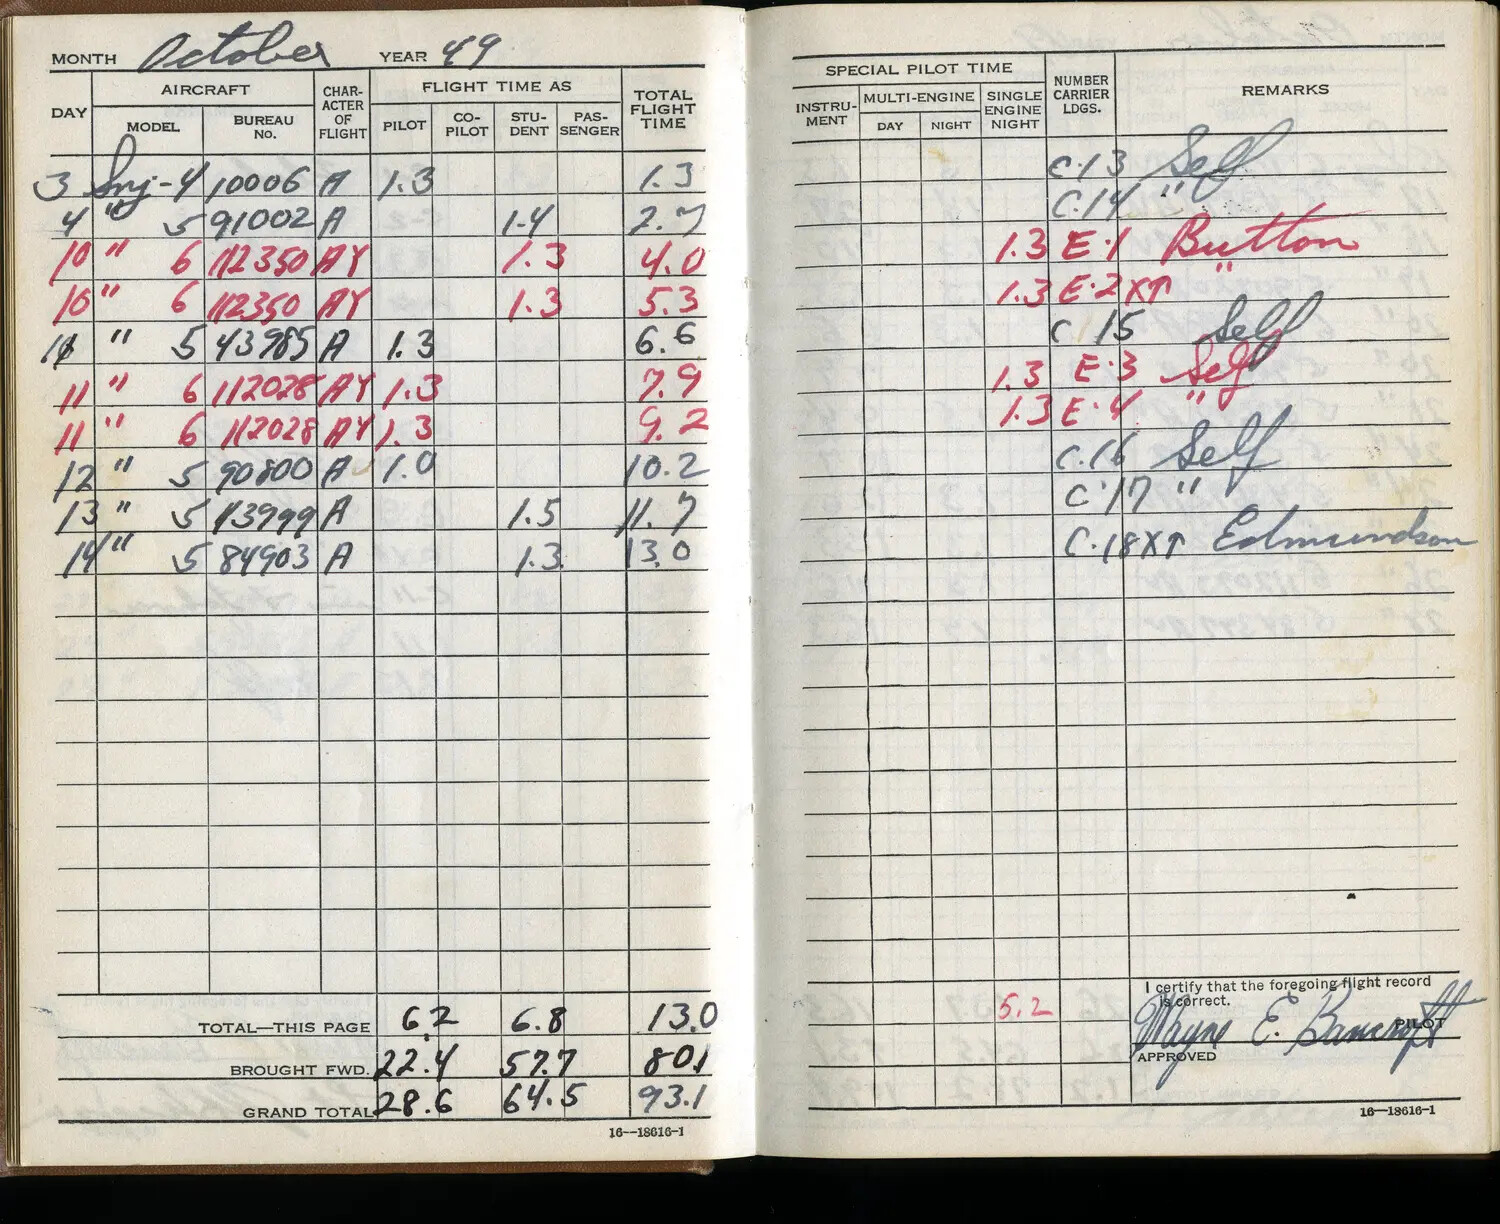 MONTH October YEAR 49
DAY AIRCRAFT CHAR-ACTER OF FLIGHT FLIGHT TIME AS TOTAL FLIGHT TIME
MODEL BUREAU NO. PILOT CO-PILOT STU-DENT PAS-SENGER
3 Snj-4 10006 A 1.3 1.3
4 " 5 91002 A 1.4 2.7
10 " 6 112350 AY 1.3 4.0
10 " 6 112350 AY 1.3 5.3
11 " 5 43985 A 1.3 6.6
11 " 6 112028 AY 1.3 7.9
11 " 6 112028 AY 1.3 9.2
12 " 5 90800 A 1.0 10.2
13 " 5 43999 A 1.5 11.7
14 " 5 84903 A 1.3 13.0
TOTAL—THIS PAGE 6.2 6.8 13.0
BROUGHT FWD. 22.4 57.7 80.1
GRAND TOTAL 28.6 64.5 93.1
16—18616-1
SPECIAL PILOT TIME NUMBER CARRIER LDGS. REMARKS
INSTRU-MENT MULTI-ENGINE SINGLE ENGINE NIGHT
DAY NIGHT
C.13 Self
C.14 "
1.3 E.1 Button
1.3 E.2XT "
C 15 Self
1.3 E.3 Self
1.3 E.4 "
C.16 Self
C.17 "
C.18XT Edmundson
I certify that the foregoing flight record
is correct.
5.2
Wayne E. Bancroft PILOT
APPROVED
16—18616-1